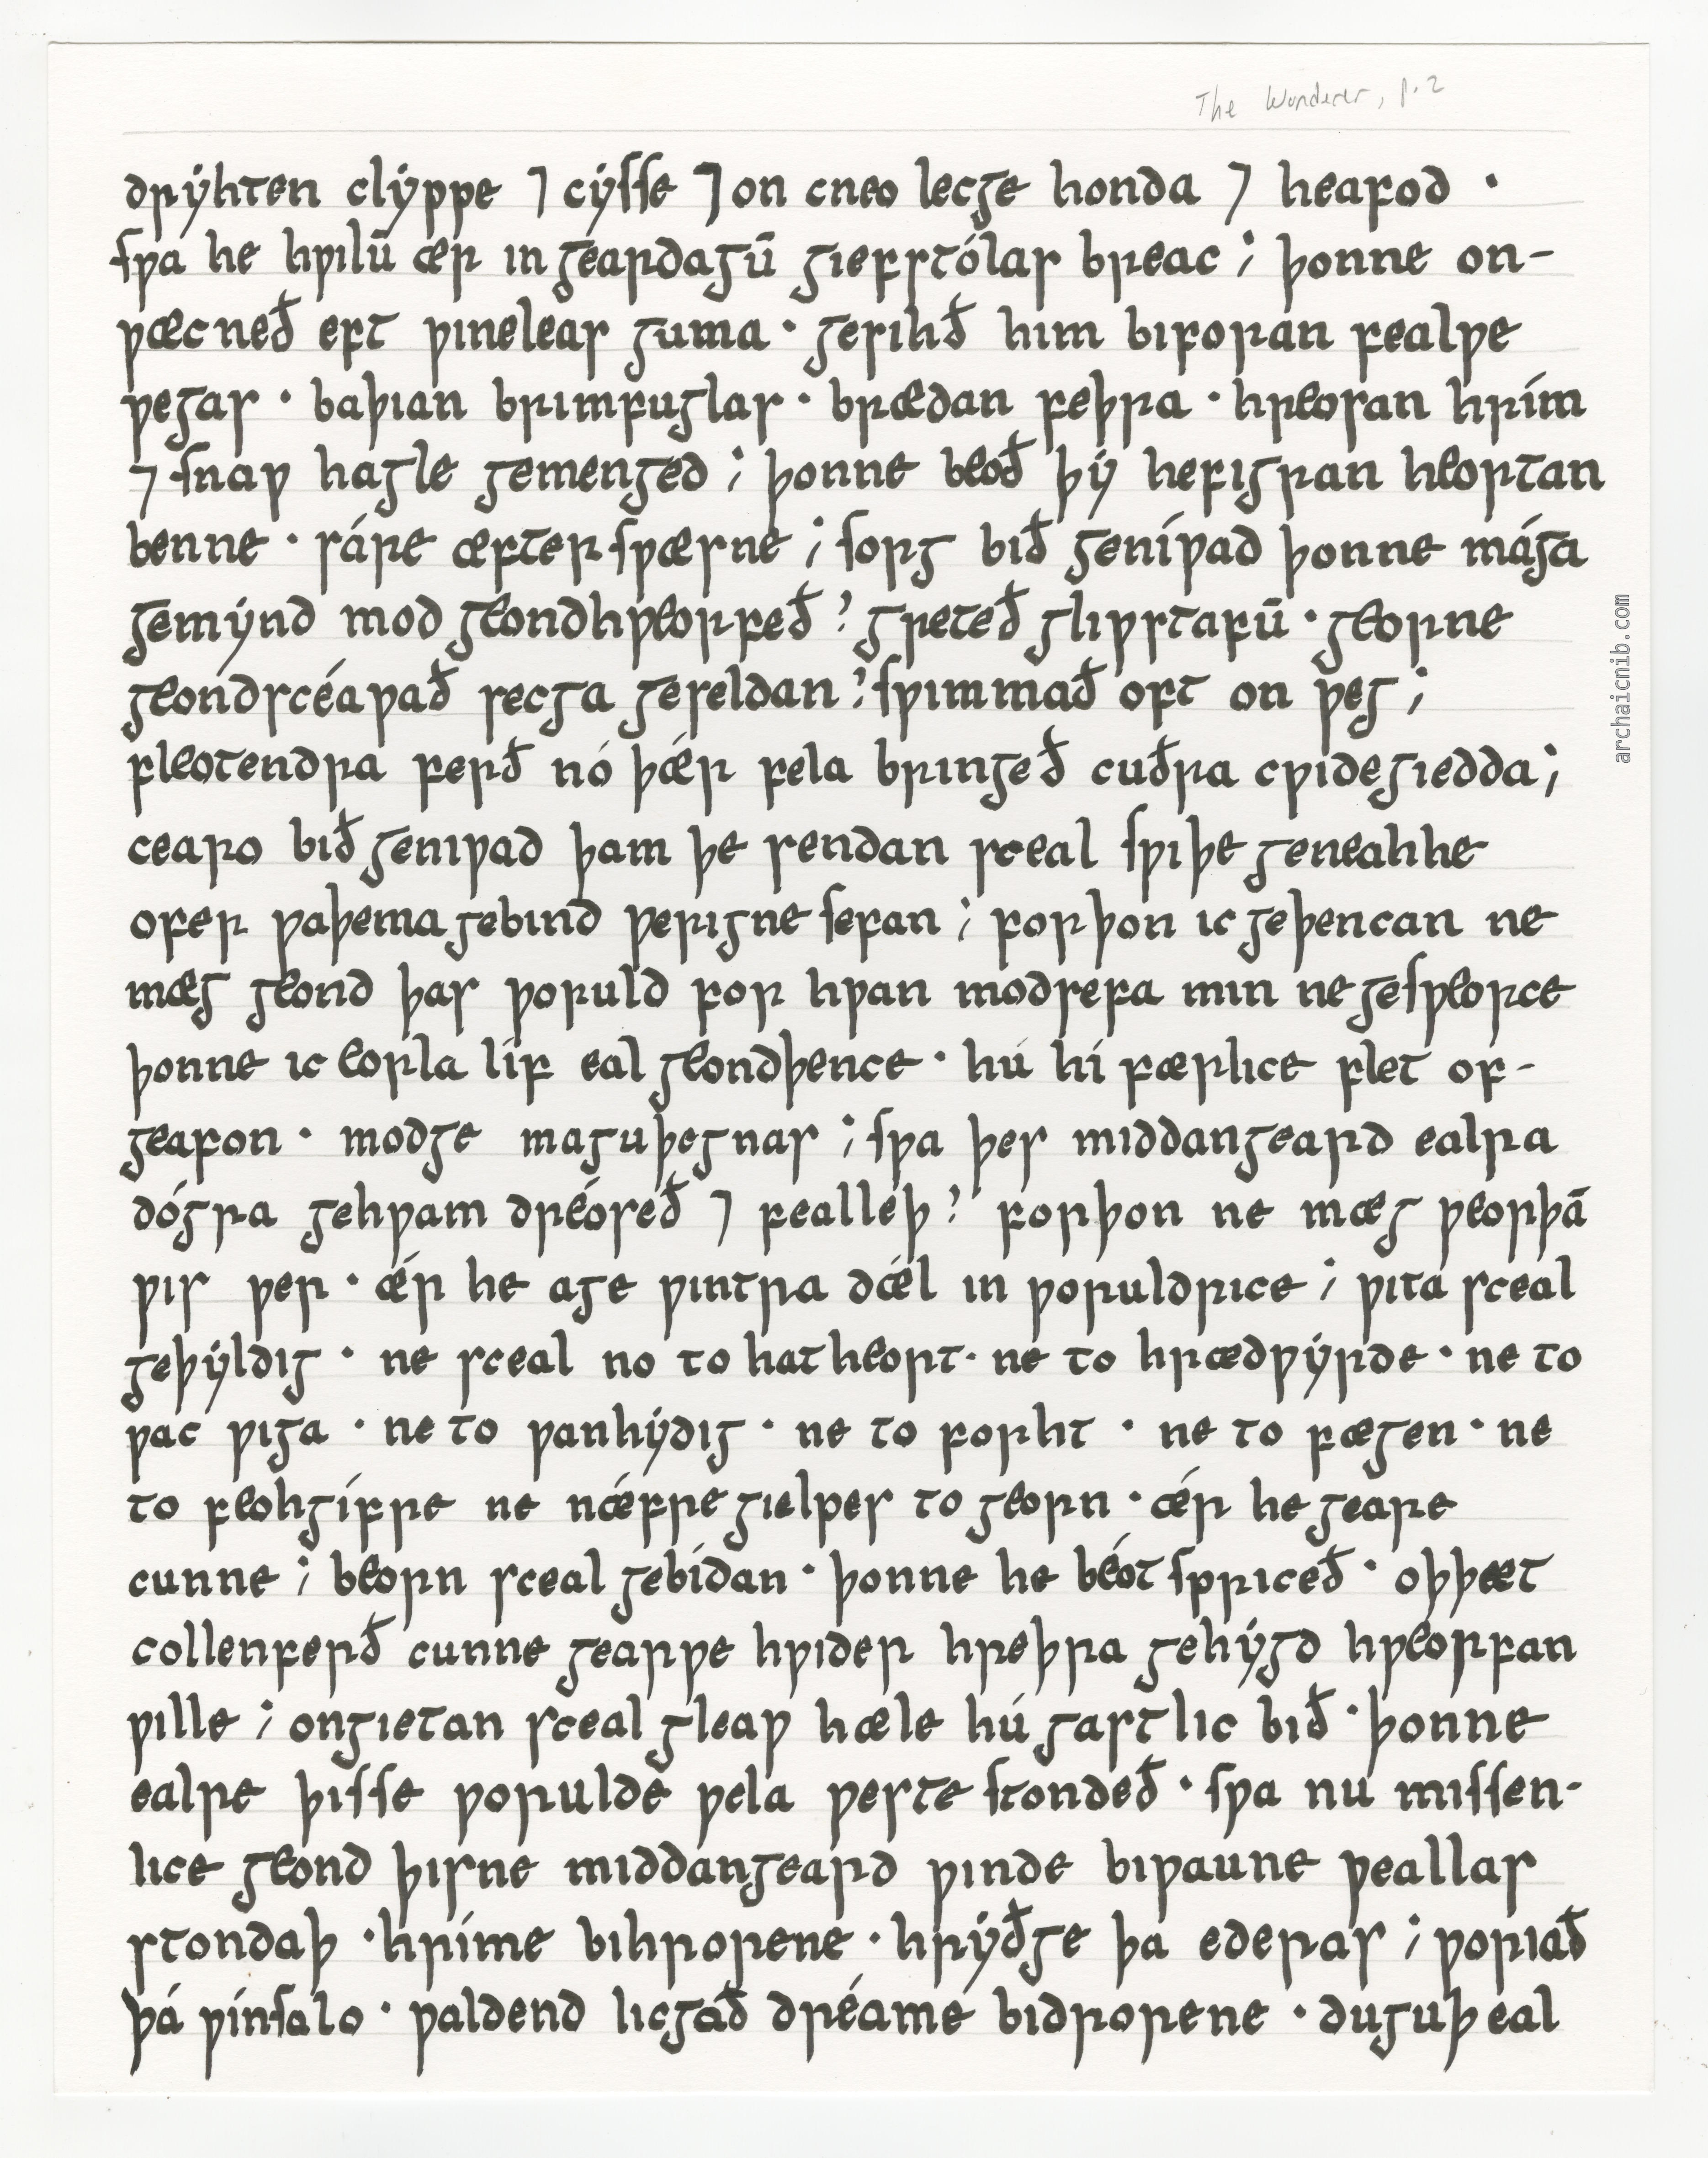 The Wanderer, p. 2
drẏhten clẏppe ⁊ cẏsse ⁊ on cneo lecge honda ⁊ heafod ·
sƿa he hƿilū ær in geardagū giefstólas breac ; þonne on-
ƿæcneð eft ƿineleas guma · gesihð him biforan fealƿe
ƿegas · baþian brimfuglas · brædan feþra · hreosan hrím
⁊ snaƿ hagle gemenged ; þonne beoð þẏ hefigran heortan
benne · sáre æfter sƿæsne ; sorg bið geníƿad þonne mága
gemẏnd mod geondhƿeorfeð ? greteð gliƿstafū · georne
geondscéaƿað secga geseldan ? sƿimmað oft on ƿeg ;
fleotendra ferð nó þǽr fela bringeð cuðra cƿidegiedda ;
cearo bið geniƿad þam þe sendan sceal sƿiþe geneahhe
ofer ƿaþema gebind ƿerigne sefan ; forþon ic geþencan ne
mæg geond þas ƿoruld for hƿan modsefa min ne gesƿeorce
þonne ic eorla líf eal geondþence · hú hí færlice flet of-
geafon · modge maguþegnas ; sƿa þes middangeard ealra
dógra gehƿam dréoseð ⁊ fealleþ ? forþon ne mæg ƿeorþā
ƿis ƿer · ǽr he age ƿintra dǽl in ƿoruldrice ; ƿita sceal
geþẏldig · ne sceal no to hatheort · ne to hrædƿẏrde · ne to
ƿac ƿiga · ne to ƿanhẏdig · ne to forht · ne to fægen · ne
to feohgífre ne nǽfre gielpes to georn · ǽr he geare
cunne ; beorn sceal gebídan · þonne he béot spriceð · oþþæt
collenferð cunne gearƿe hƿider hreþra gehẏgd hƿeorfan
ƿille ; ongietan sceal gleaƿ hæle hú gastlic bið · þonne
ealre þisse ƿorulde ƿela ƿeste stondeð · sƿa nu missen-
lice geond þisne middangeard ƿinde biƿaune ƿeallas
stondaþ · hríme bihrorene · hrẏðge þa ederas ; ƿoriað
þá ƿínsalo · ƿaldend licgað dréame bidrorene · duguþ eal
archaicnib.com